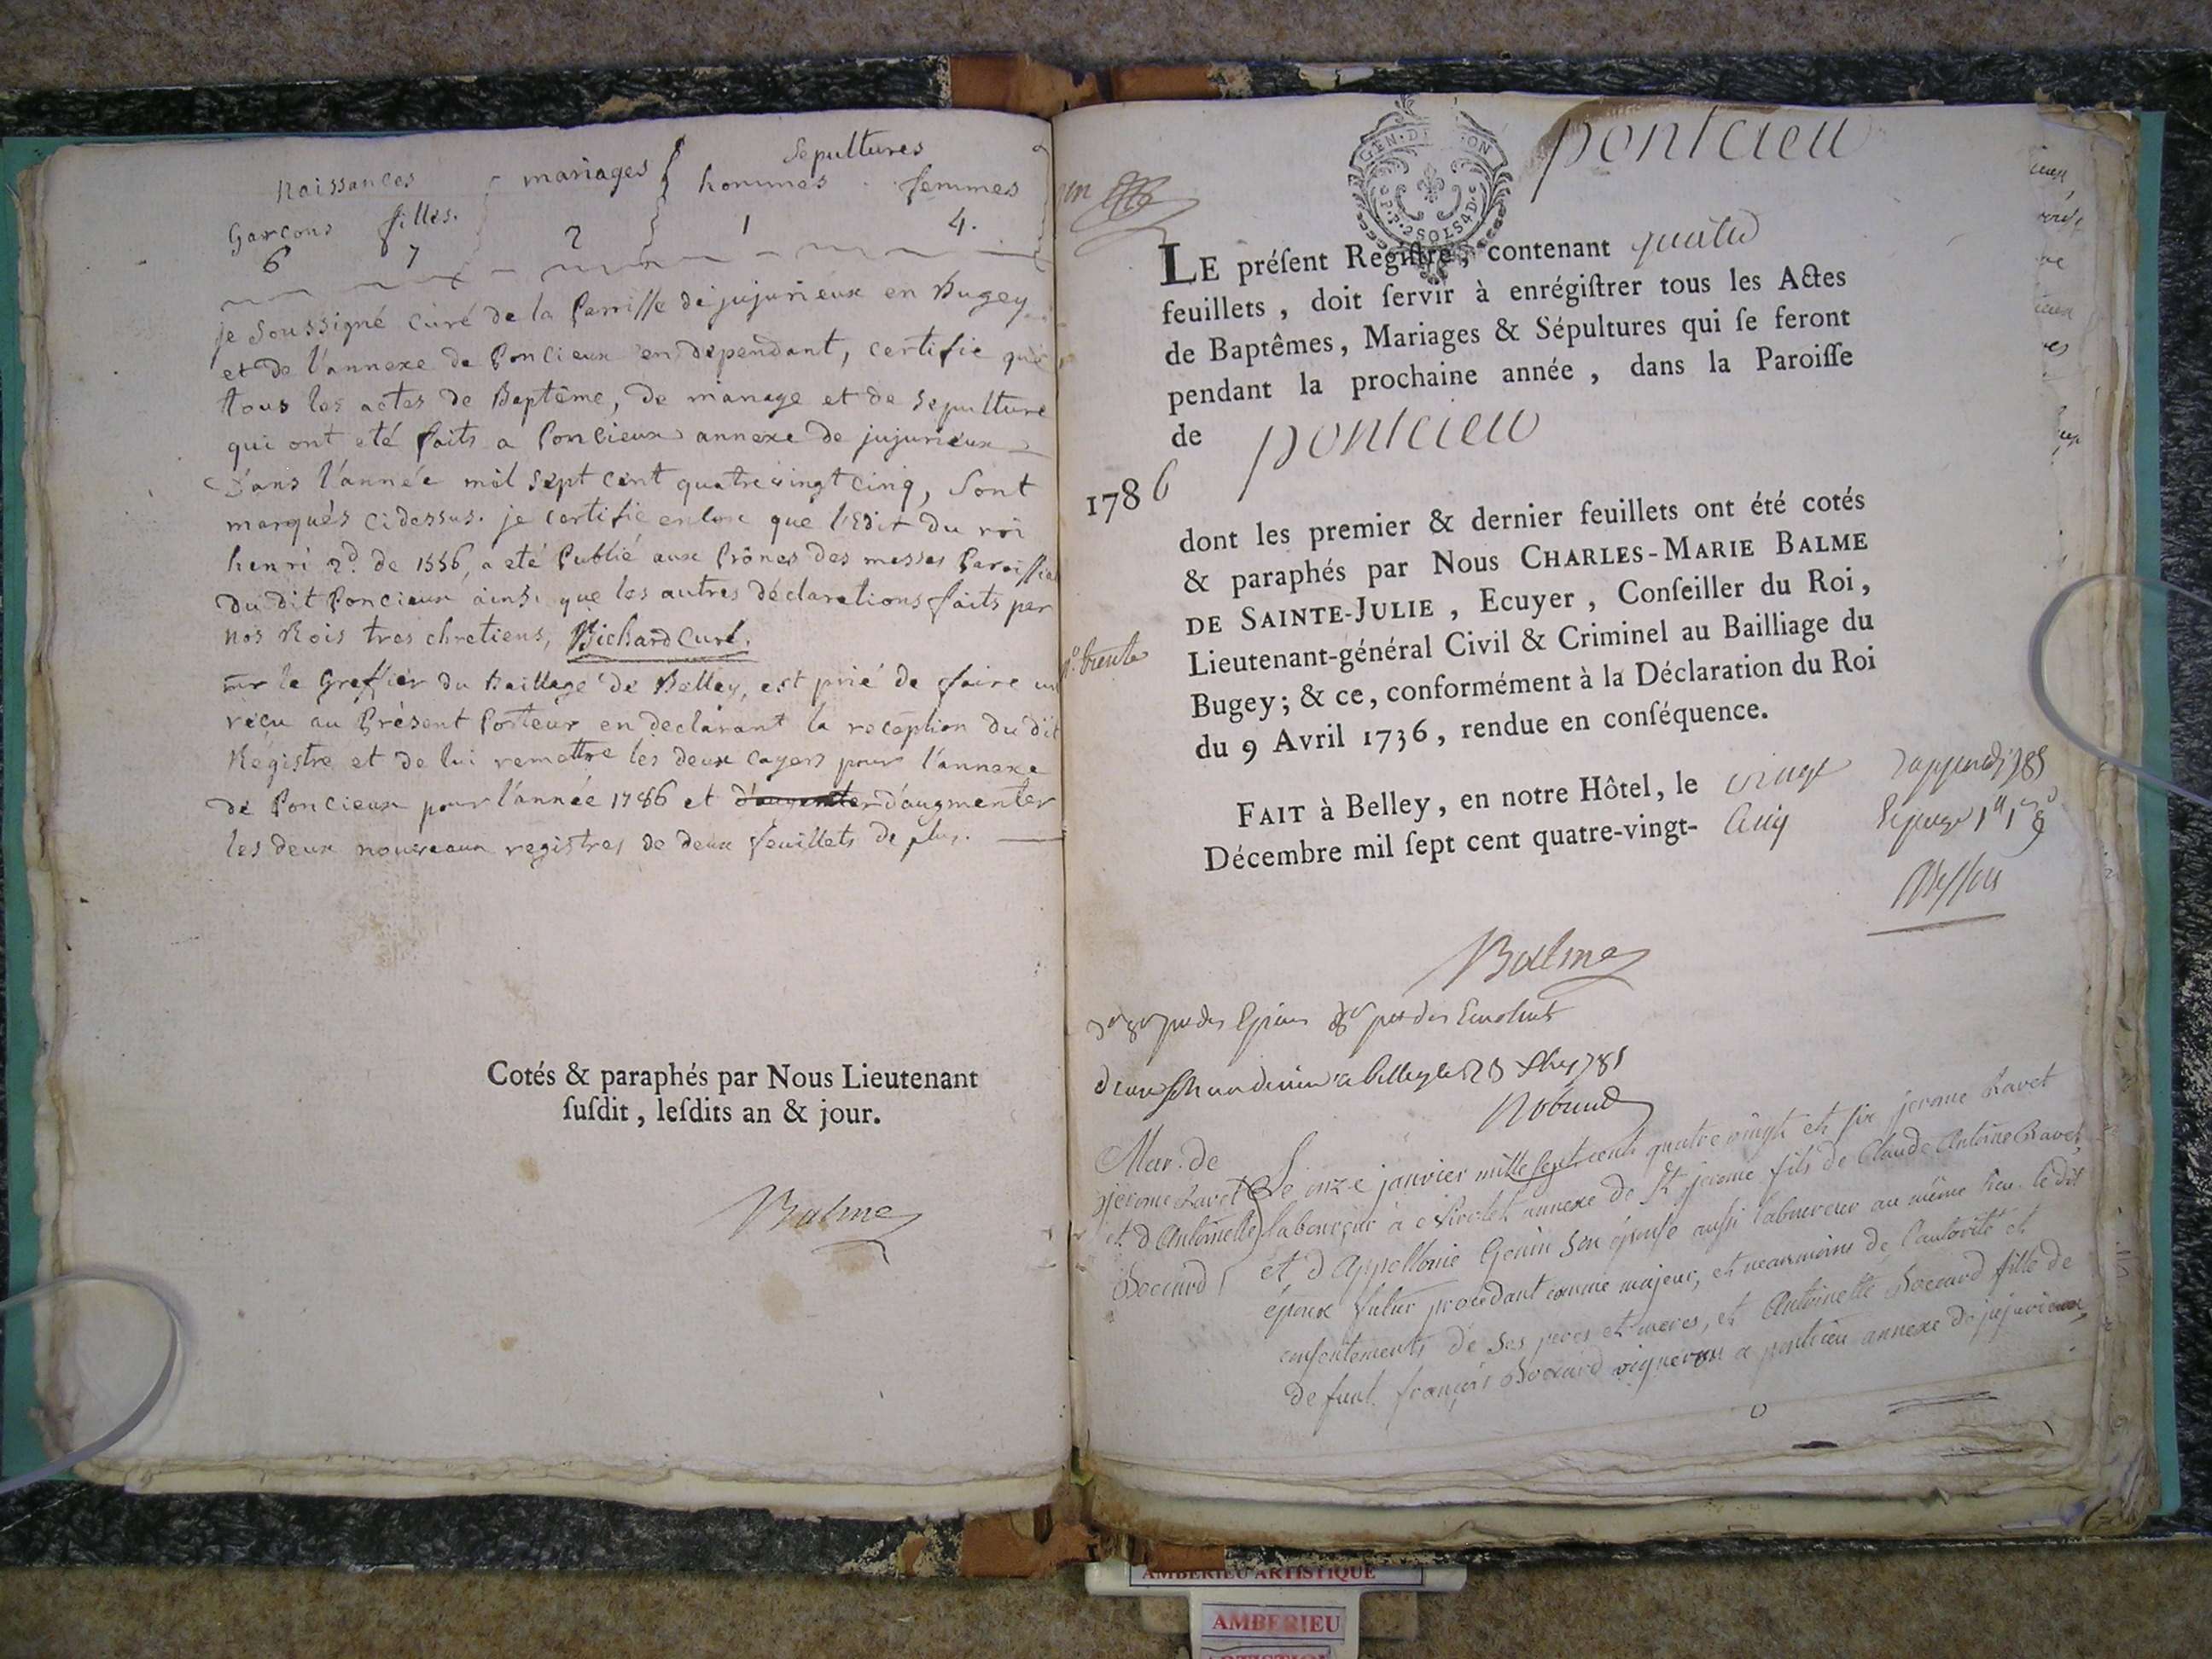 Naissances mariages Sepultures
Garcons filles. hommes femmes
6 7 2 1 4.
je soussigné curé de la Parrisse de jujurieux en Bugey
et de l'annexe de Poncieux en dependant, certifie que
tous les actes de Baptême, de mariage et de sepulture
qui ont eté faits a Poncieux annexe de jujurieux
Dans l'année mil sept cent quatre vingt cinq, sont
marqués cidessus. je certifie que l'Edit du roi
henri 2d. de 1556, a eté Publié aux Prônes des messes
du dit Poncieux ainsi que les autres déclarations faits par
nos Rois tres chretiens, Bichard Curé.
mr le Greffier du Bailliage de Belley, est prié de faire un
reçu au Présent Porteur en declarant la reception du dit
Régistre et de lui remettre les deux cayers pour l'annexe
de Poncieux pour l'année 1786 et d'augmenter
les deux nouveaux registres de deux feuillets de plus.
Cotés & paraphés par Nous Lieutenant
ſuſdit, leſdits an & jour.
Balme
GEN. DE ON
2 SOLS 4 D.
pontcieu
LE préſent Regiſtre, contenant quatre
feuillets, doit ſervir à enrégiſtrer tous les Actes
de Baptêmes, Mariages & Sépultures qui ſe feront
pendant la prochaine année, dans la Paroiſſe
de pontcieu
1786
dont les premier & dernier feuillets ont été cotés
& paraphés par Nous CHARLES-MARIE BALME
DE SAINTE-JULIE, Ecuyer, Conſeiller du Roi,
Lieutenant-général Civil & Criminel au Bailliage du
Bugey; & ce, conformément à la Déclaration du Roi
du 9 Avril 1736, rendue en conſéquence.
trente
FAIT à Belley, en notre Hôtel, le vingt
Décembre mil ſept cent quatre-vingt- cinq
Balme
Mar. de
jerome Ravet
et d Antoinette
Boccard
Le onze janvier mille sept cent quatre vingt et six jerome Ravet
laboureur a annexe de St jerome fils de Claude Antoine Ravet
et d Appollonie Genin son épouse aussi laboureur au même lieu le dit
époux futur procedant comme majeur, et neanmoins de l'autorité et
consentements de ses peres et meres, et Antoinette Boccard fille de
defunt françois Boccard vigneron a pontcieu annexe de jujurieux,
AMBERIEU ARTISTIQUE
AMBERIEU